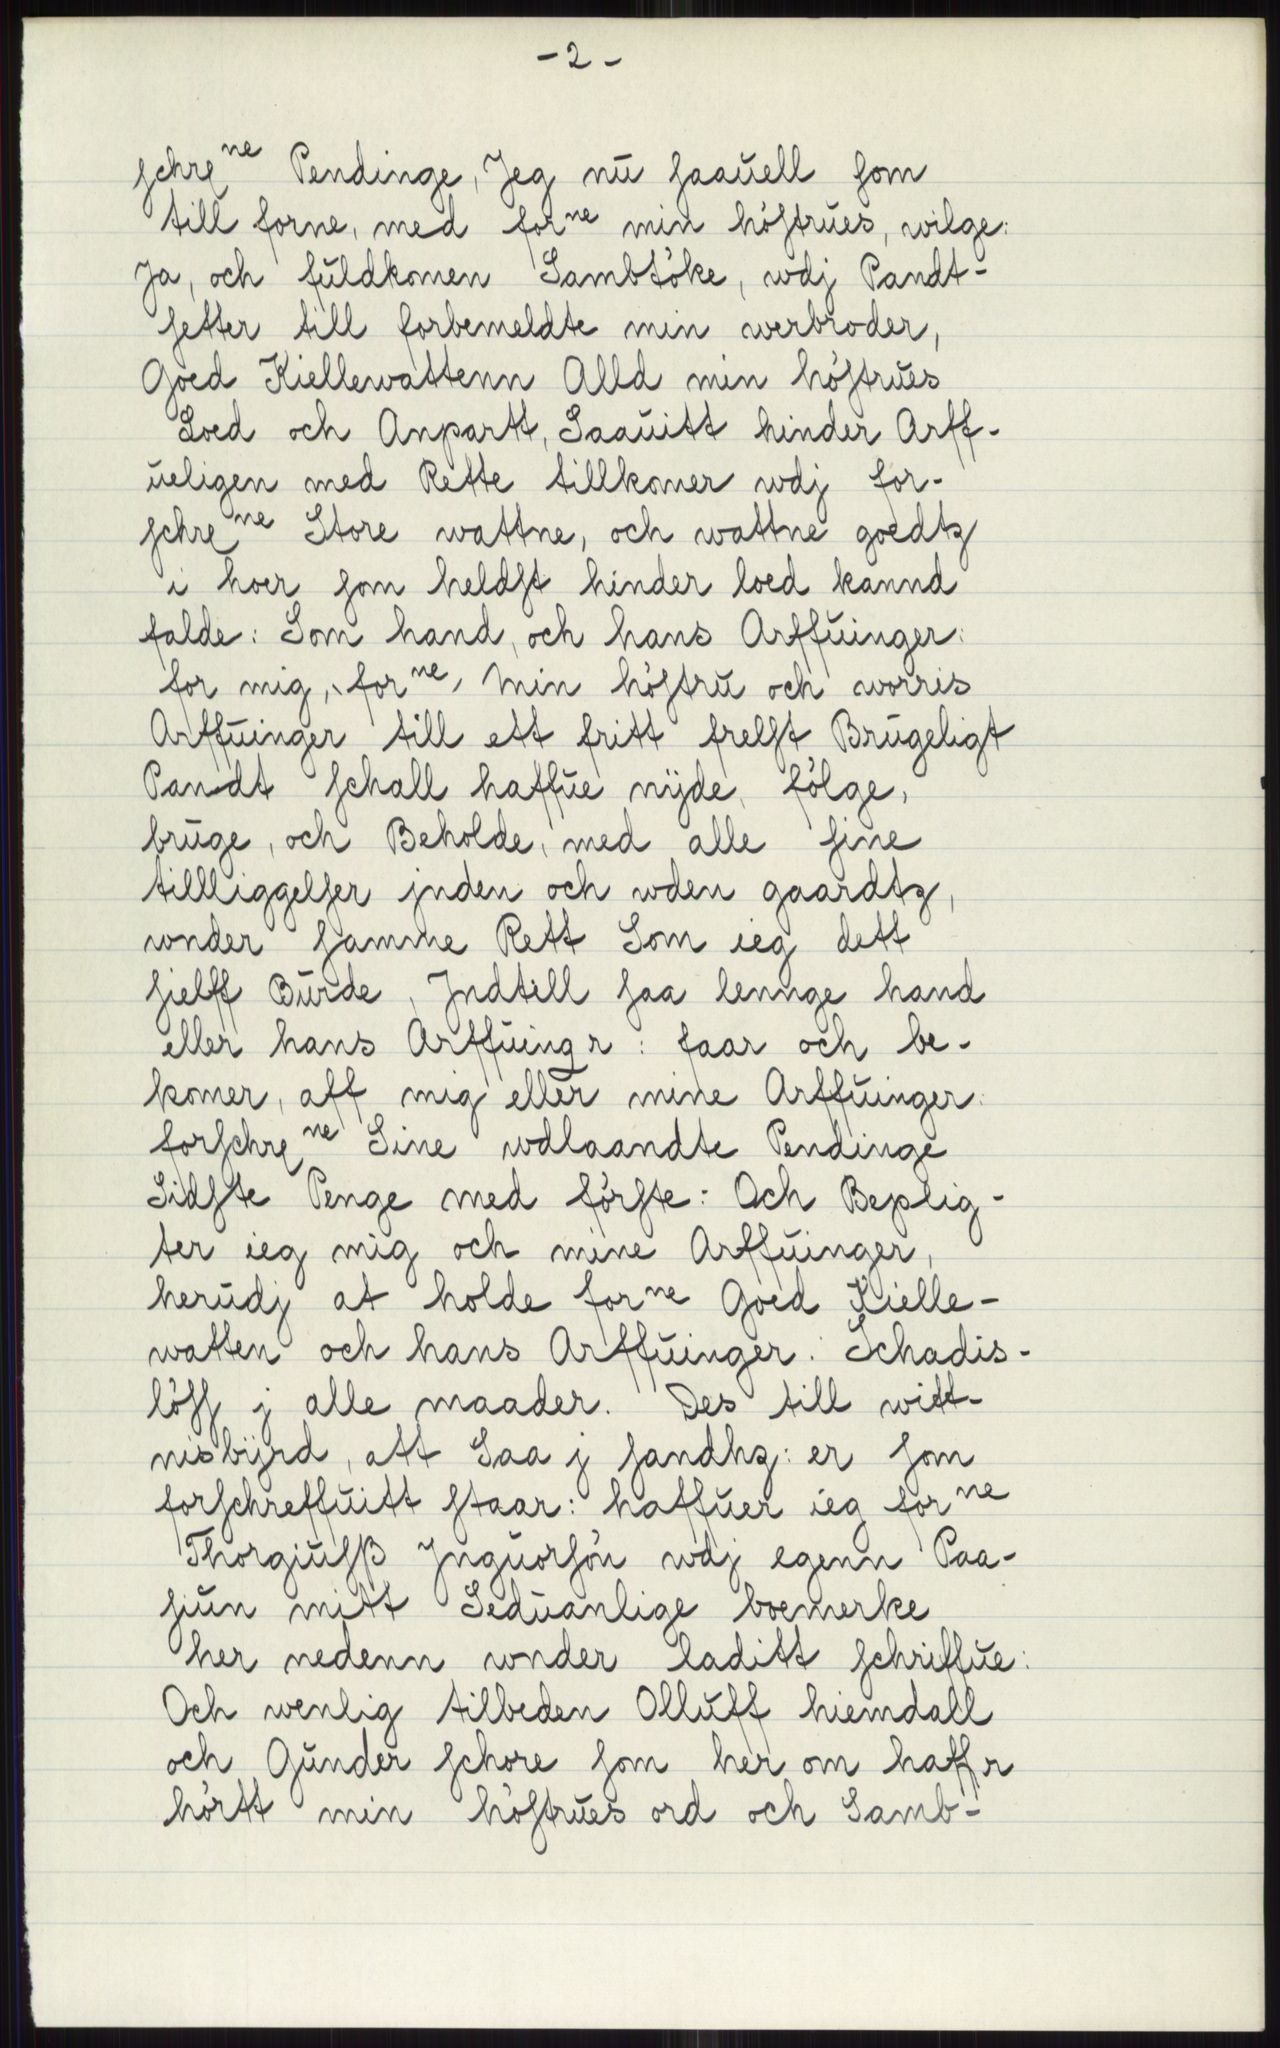 - 2 -
schre^ne Pendinge, Jeg nu saauell som
till forne, med for^ne min höstrues, wilge:
Ja, och fuldkomen Sambtöke, wdj Pandt-
setter till forbemeldte min werbroder,
Goed Kiellewattenn Alld min höstrues
Loed och Anpartt, Saauitt hinder Arff-
ueligen med Rette tillkomer wdj for-
schre^ne Store wattne, och wattne goedtz
i hoer som heldst hinder loed kannd
falde: Som hand, och hans Arffuinger:
for mig, for^ne, Min höstru och worris
Arffuinger till ett fritt frelst Brugeligt
Pandt schall haffue nyde, fölge,
bruge, och Beholde, med alle sine
tillliggelser jnden och wden gaardtz,
wnder samme Rett Som ieg dett
sielff Burde, Jndtill saa lennge hand
eller hans Arffuingr: faar och be-
komer, aff mig eller mine Arffuinger:
forschre^ne Sine wdlaandte Pendinge
Sidste Penge med förste: Och Beplig-
ter ieg mig och mine Arffuinger,
herudj at holde for^ne Goed Kielle-
watten och hans Arffuinger. Schadis-
löss j alle maader. Des till witt-
nisbyrd, att Saa j sandhz: er som
forschreffuitt staar: haffuer ieg for^ne
Thorgiulsß Jnguorsön wdj egenn Paa-
siun mitt Seduanlige boemerke
her nedenn wnder laditt schriffue:
Och wenlig tilbeden Olluff hiemdall
och Gunder schore som her om haffr
hörtt min höstrues ord och Samb-